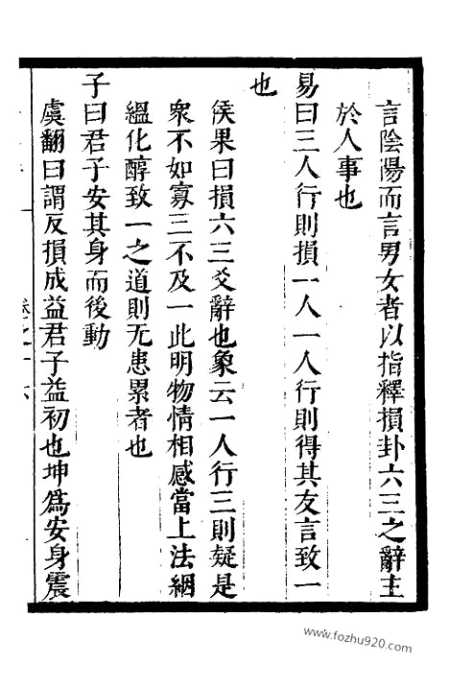 言陰陽而言男女者以指釋損卦六三之辭主
於人事也
易曰三人行則損一人一人行則得其友言致一
也
侯果曰損六三爻辭也象云一人行三則疑是
衆不如寡三不及一此明物情相感當上法絪
縕化醇致一之道則无患累者也
子曰君子安其身而後動
虞翻曰謂反損成益君子益初也坤爲安身震
卷之十六
www.fozhu920.com